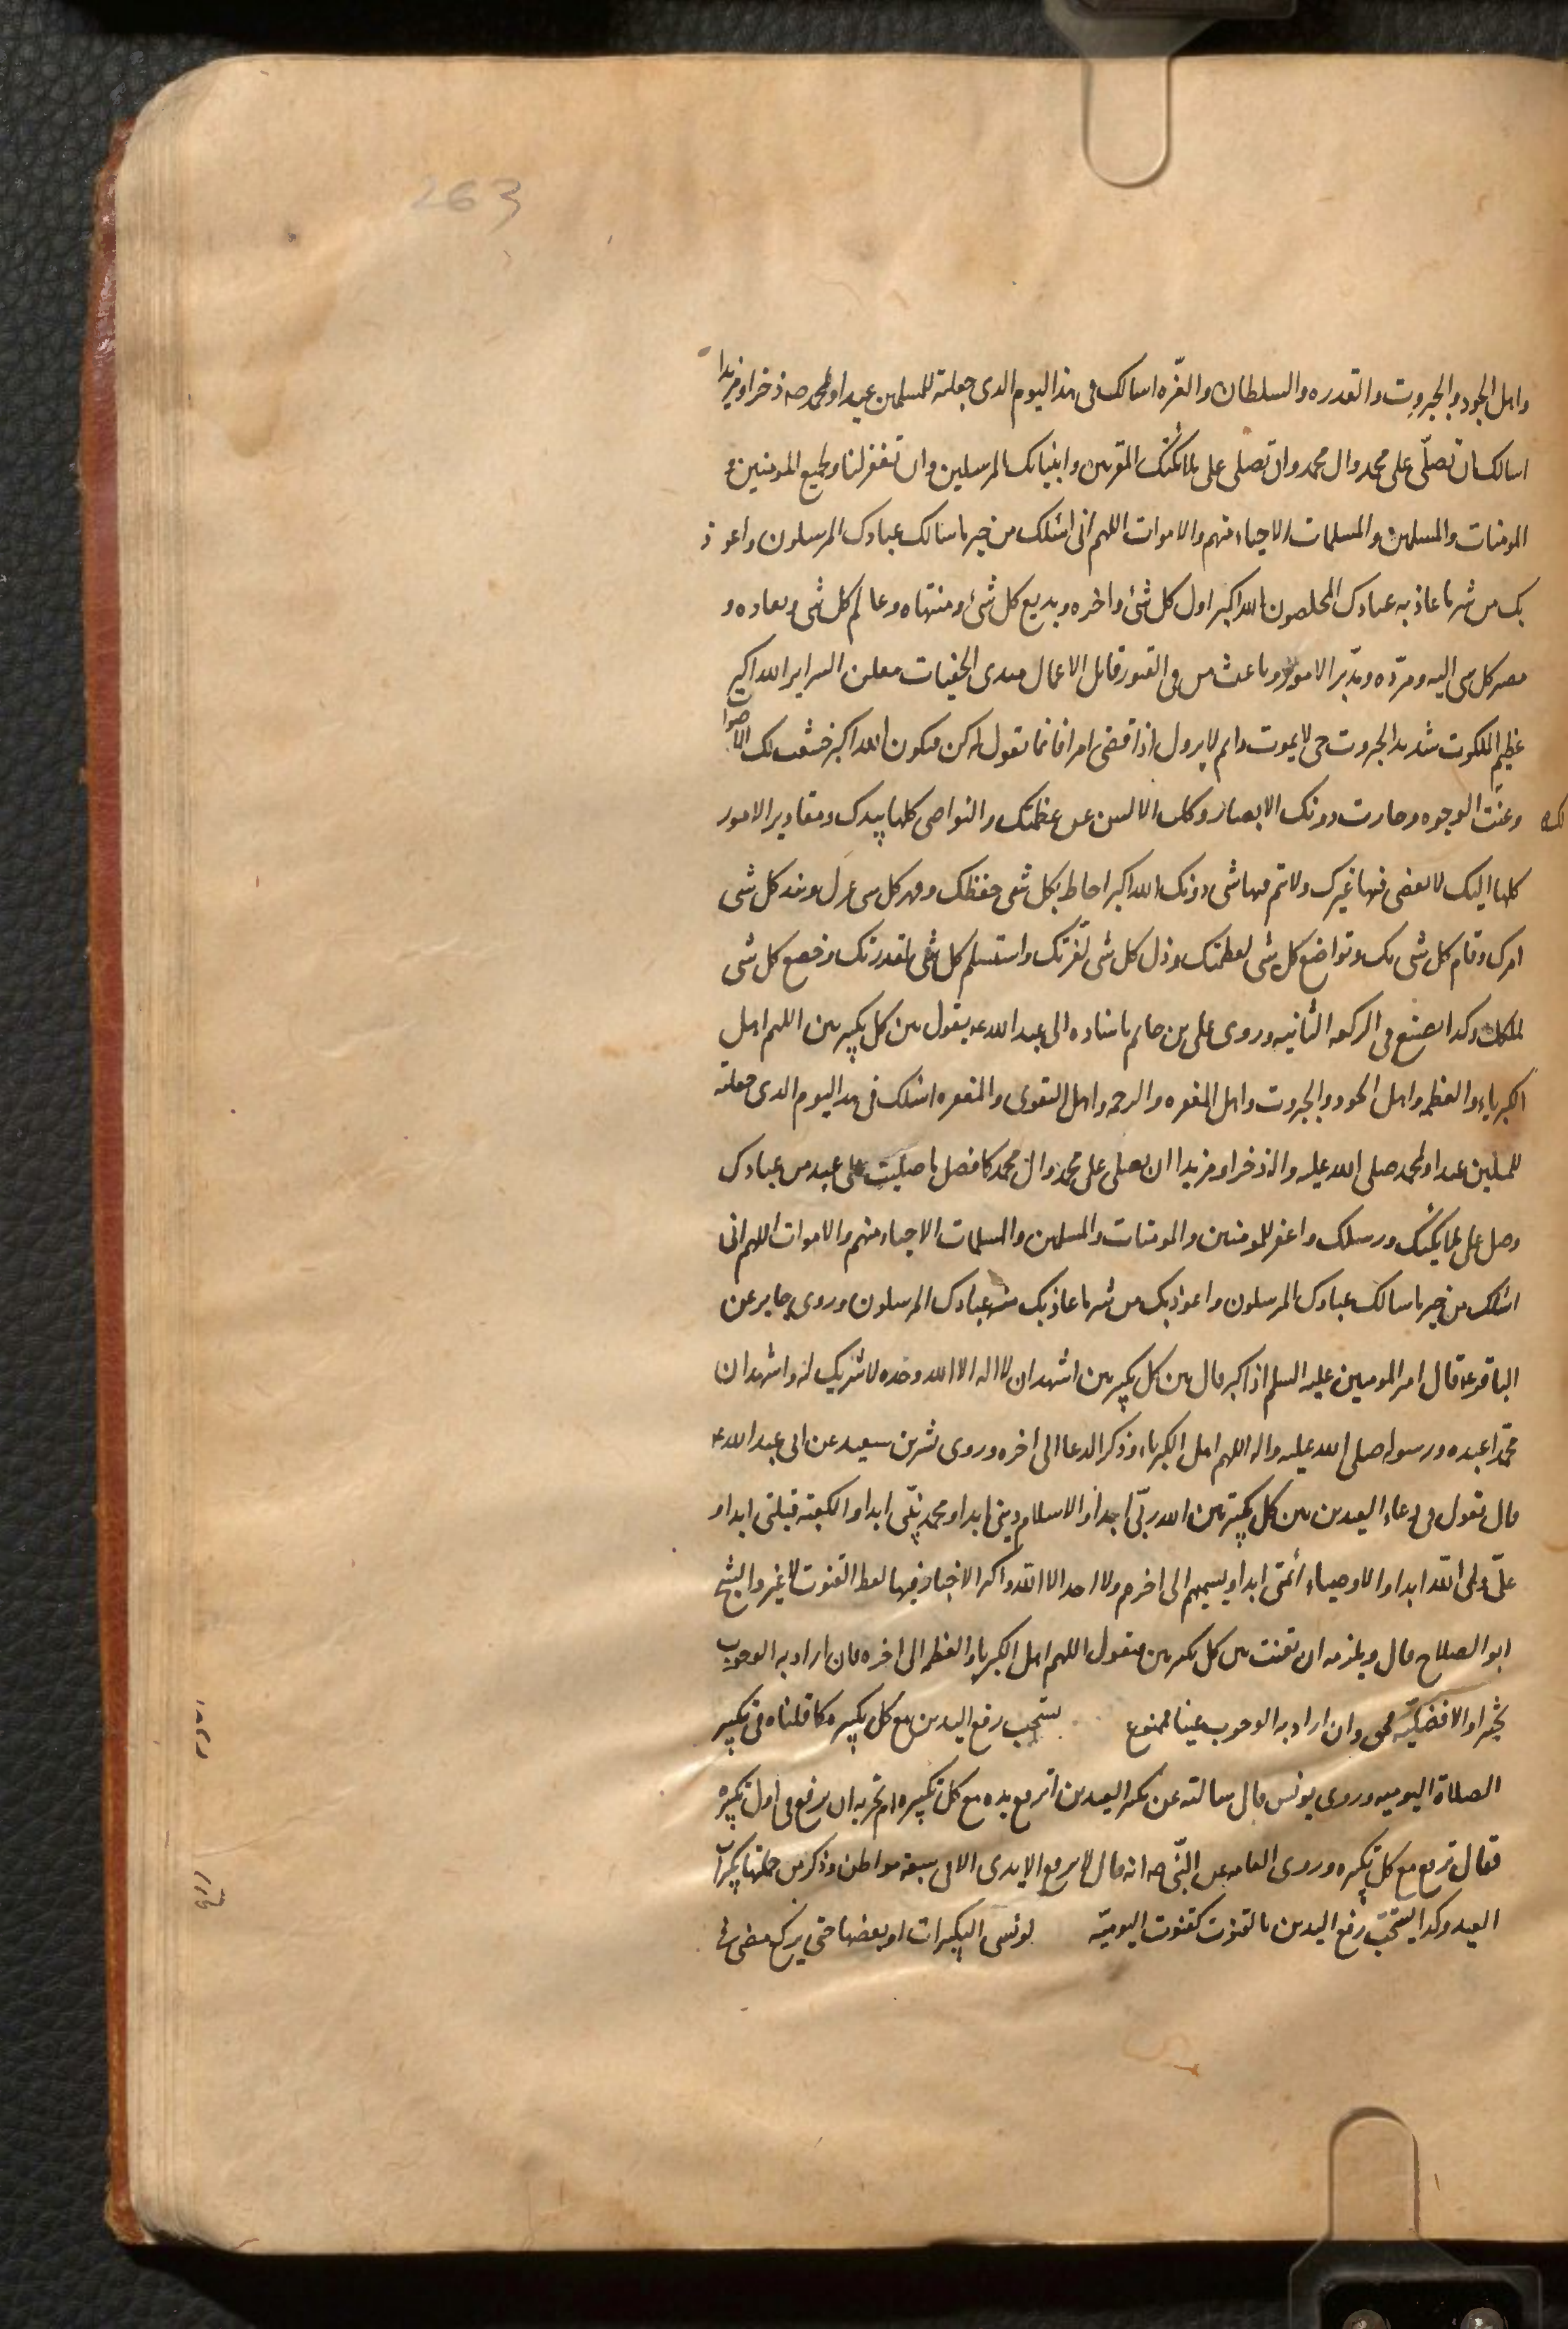 263
واهل الجود والجبروت والقدره والسلطان والعزّه اسالك فى هذا اليوم الذى جعلته للمسلمين عيدا ولمحمد صه ذخرا ومزيدا
اسالك ان تصلّى على محمد وال محمد وان تصلى على ملائكتك المقربين وانبيائك المرسلين وان تغفر لنا ولجميع المومنين و
المومنات والمسلمين والمسلمات الاحياء منهم والاموات اللهم انى اسئلك من خير ما سالك عبادك المرسلون واعوذ
بك من شر ما عاذ به عبادك المخلصون الله اكبر اول كل شئ واخره وبديع كل شئ ومنتهاه وعالم كل شى ومعاده و
مصير كل شى اليه ومردّه ومدبّر الامور وباعث من فى القبور قابل الاعمال مبدى الخفيات معلن السراير الله اكبر
عظيم الملكوت شديد الجبروت حى لا يموت دايم لا يزول اذا قضى امرا فانما يقول له كن فيكون الله اكبر خشعت لك الاصوات
وعنت لك الوجوه وحارت دونك الابصار وكلت الالسن عن عظمتك والنواصى كلها بيدك ومقادير الامور
كلها اليك لا يقضى فيها غيرك ولا يتم منها شى دونك الله اكبر احاط بكل شى حفظك وقهر كل شى عزك ونفد كل شى
امرك وقام كل شى بك وتواضع كل شى لعظمتك وذل كل شى لعزتك واستسلم كل شى لقدرتك وخضع كل شى
لملكك وكدا يصنع فى الركعه الثانيه وروى على بن حاتم باسناده الى ابى عبد الله ع يقول بين كل تكبيرتين اللهم اهل
الكبرياء والعظمه واهل الجود والجبروت واهل المغفره والرحمه واهل التقوى والمغفره اسئلك فى هذا اليوم الذى جعلته
للمسلمين عيدا ولمحمد صلى الله عليه واله ذخرا ومزيدا ان تصلى على محمد وال محمد كافضل ما صليت على عبد من عبادك
وصل على ملايكتك ورسلك واغفر للمومنين والمومنات والمسلمين والمسلمات الاحياء منهم والاموات اللهم انى
اسئلك من خير ما سالك عبادك المرسلون واعوذ بك من شر ما عاذ بك منه عبادك المرسلون وروى جابر عن
الباقر ع قال امير المومنين عليه السلم اذا كبر قال بين كل تكبيرتين اشهد ان لا اله الا الله وحده لا شريك له واشهد ان
محمّدا عبده ورسوله صلى الله عليه واله اللهم اهل الكبرياء وذكر الدعا الى اخره وروى بشر بن سعيد عن ابى عبد الله ع
قال تقول فى دعاء العيدين بين كل تكبيرتين الله ربّى ابدا والاسلام دينى ابدا ومحمد نبيّى ابدا والكعبة قبلتى ابدا و
علىّ ولى الله ابدا والاوصياء ائمتى ابدا ويسميهم الى اخرهم ولا احد الا الله واكثر الاخبار فيها لفظ القنوت لا غير والشيخ
ابو الصلاح قال ويلزمه ان يقنت بين كل تكبيرتين فيقول اللهم اهل الكبرياء والعظمه الى اخره فان اراد به الوجوب
تخييرا او الافضليّة فحق وان اراد به الوجوب عينا فممنوع يستحب رفع اليدين مع كل تكبيره كما قلناه فى تكبير
الصلاة اليوميه وروى يونس قال سالته عن تكبير العيدين ايرفع يده مع كل تكبيره ام تجزيه ان يرفع فى اول تكبيره
فقال يرفع مع كل تكبيره وروى العامه عن النبىّ صه انه قال لا ترفع الايدى الا فى سبعة مواطن وذكر من جملتها تكبيرات
العيد وكدا يستحبّ رفع اليدين بالقنوت كقنوت اليوميّه لو نسى التكبيرات او بعضها حتى يركع مضى فى